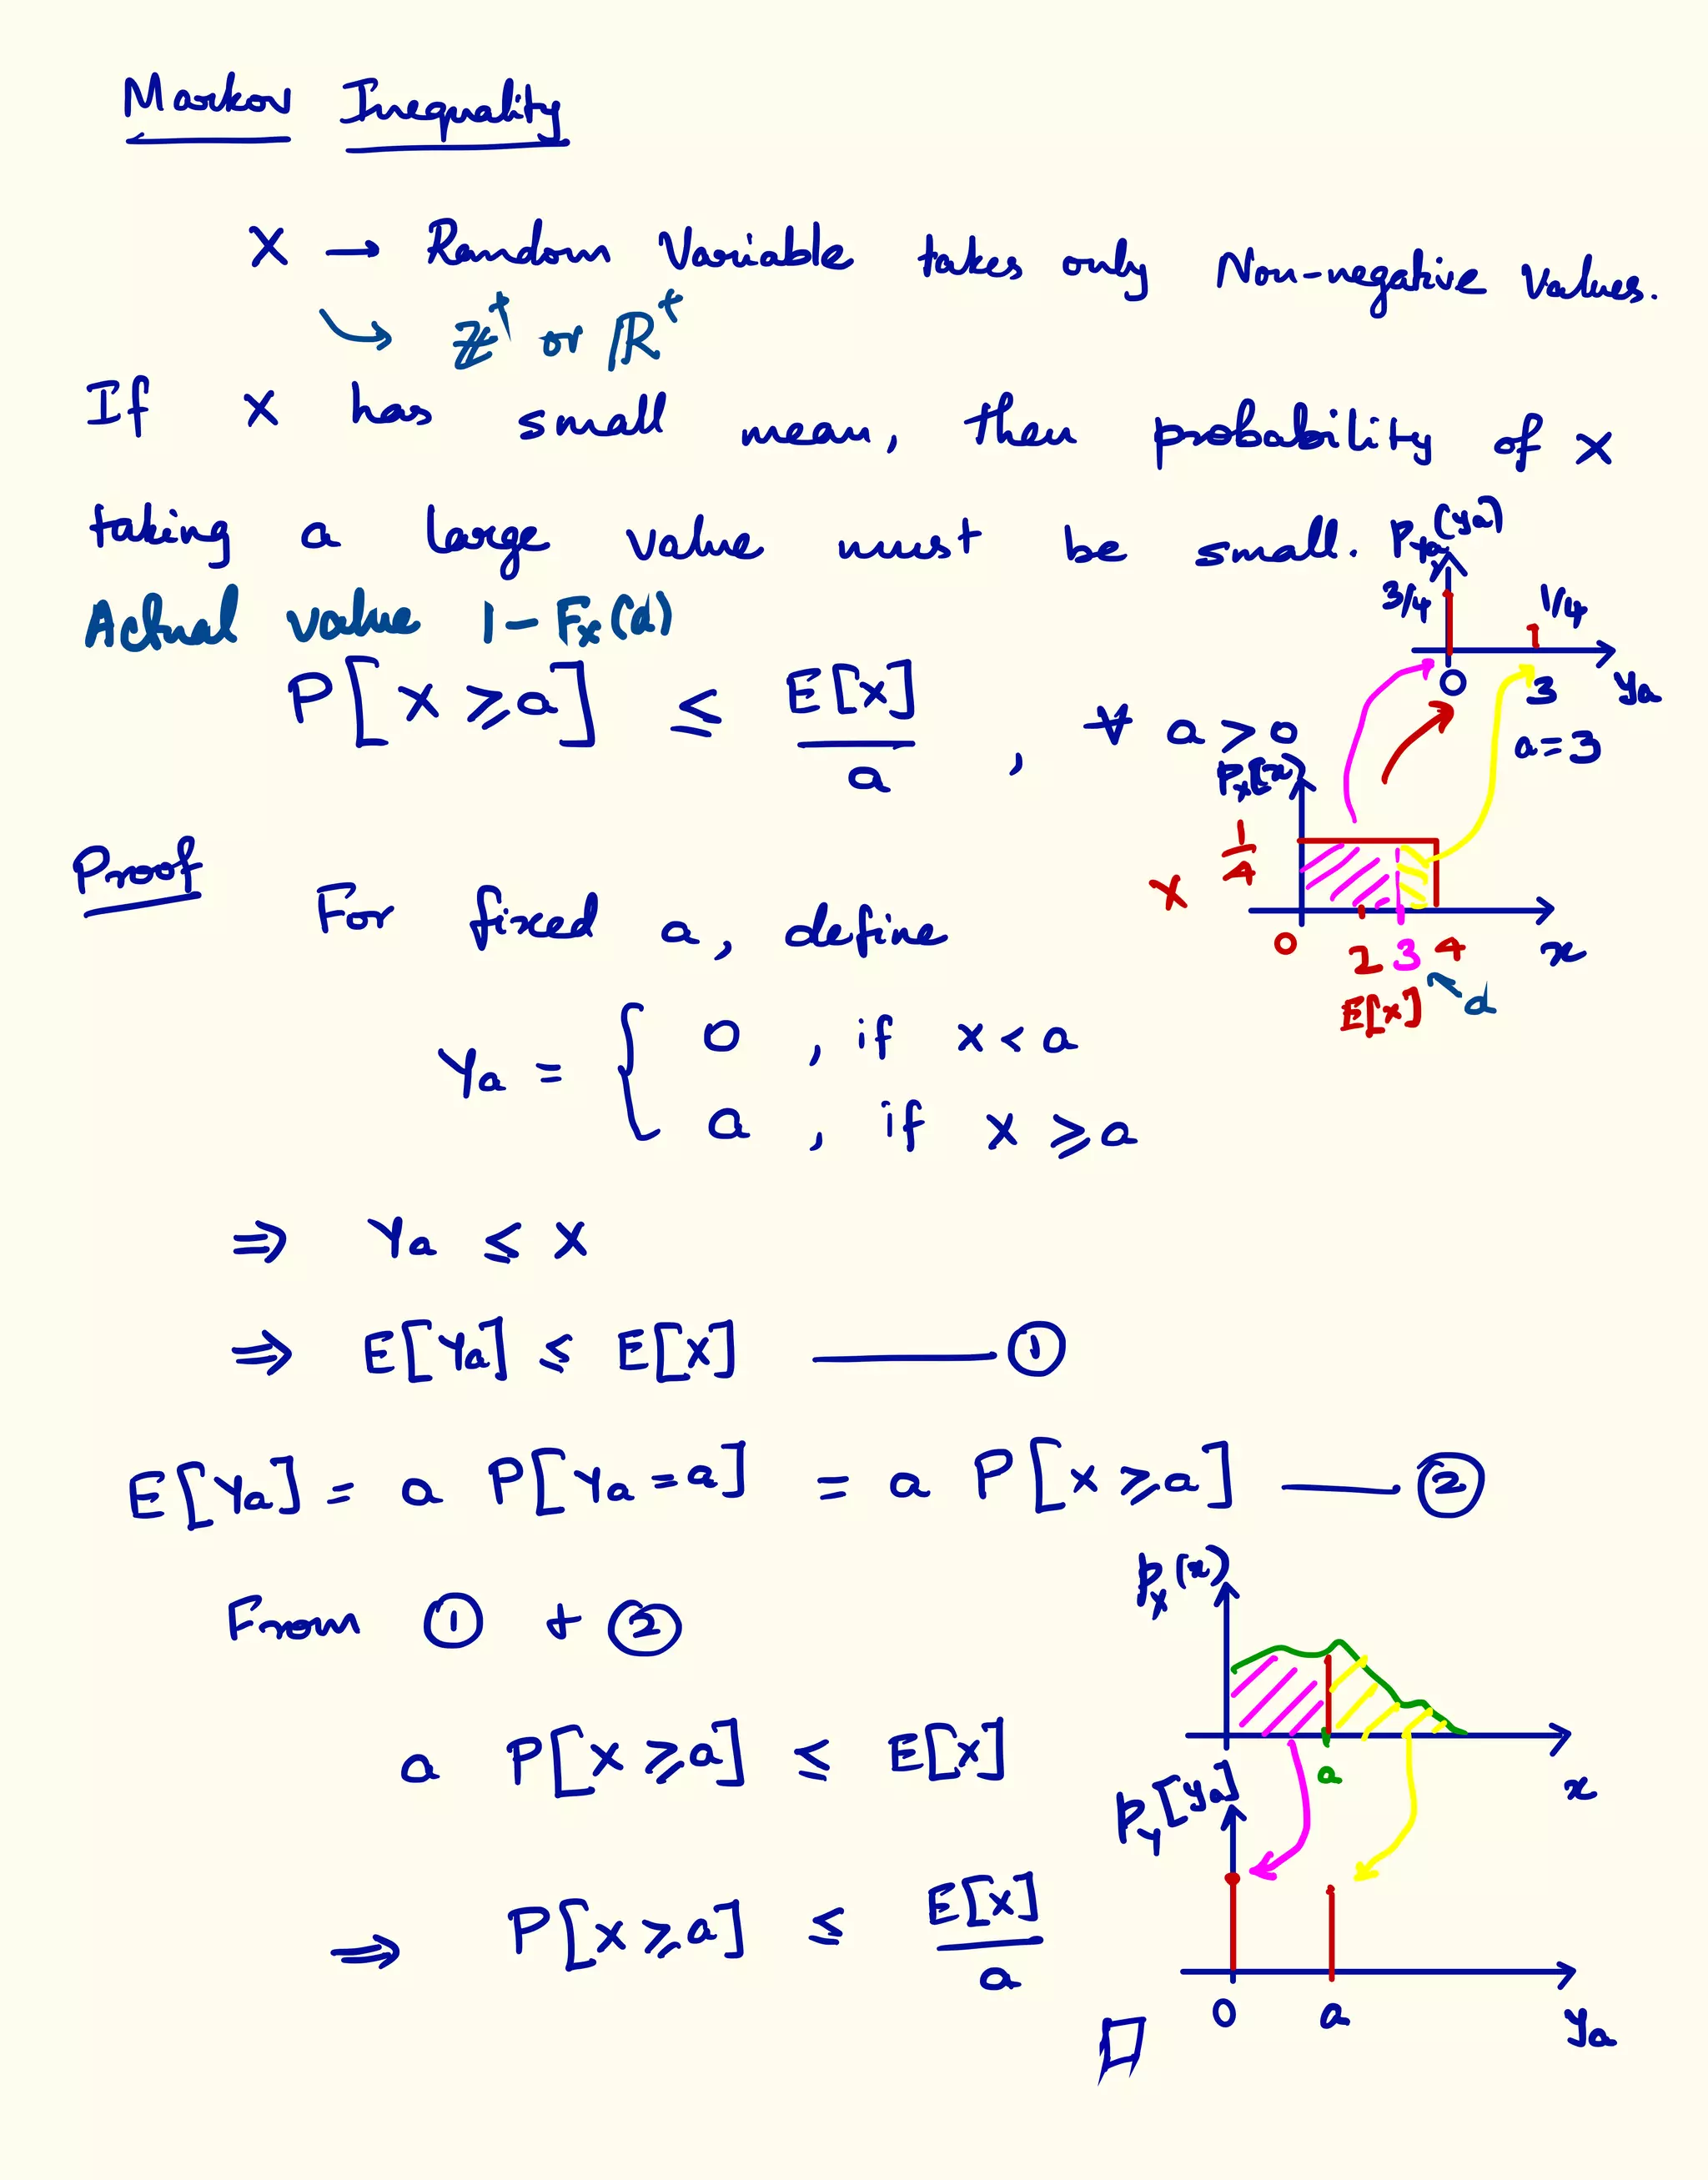 Markov Inequality
X → Random Variable takes only Non-negative Values.
Z⁺ or R⁺
If X has small mean, then probability of X
taking a large value must be small.
Actual value 1 - Fx(a)
P[X ⩾ a] ≤ E[X] / a , ∀ a > 0
P_Ya(ya)
3/4
1/4
0
3
ya
a = 3
Px(x)
1/4
X
0
2
3
4
x
E[X]
a
Proof
For fixed a, define
Ya = { 0 , if X < a
a , if X ⩾ a
⇒ Ya ≤ X
⇒ E[Ya] ≤ E[X] —— ①
E[Ya] = a P[Ya = a] = a P[X ⩾ a] —— ②
From ① + ②
a P[X ⩾ a] ≤ E[X]
⇒ P[X ⩾ a] ≤ E[X] / a
Px(x)
a
x
PY[ya]
0
a
ya